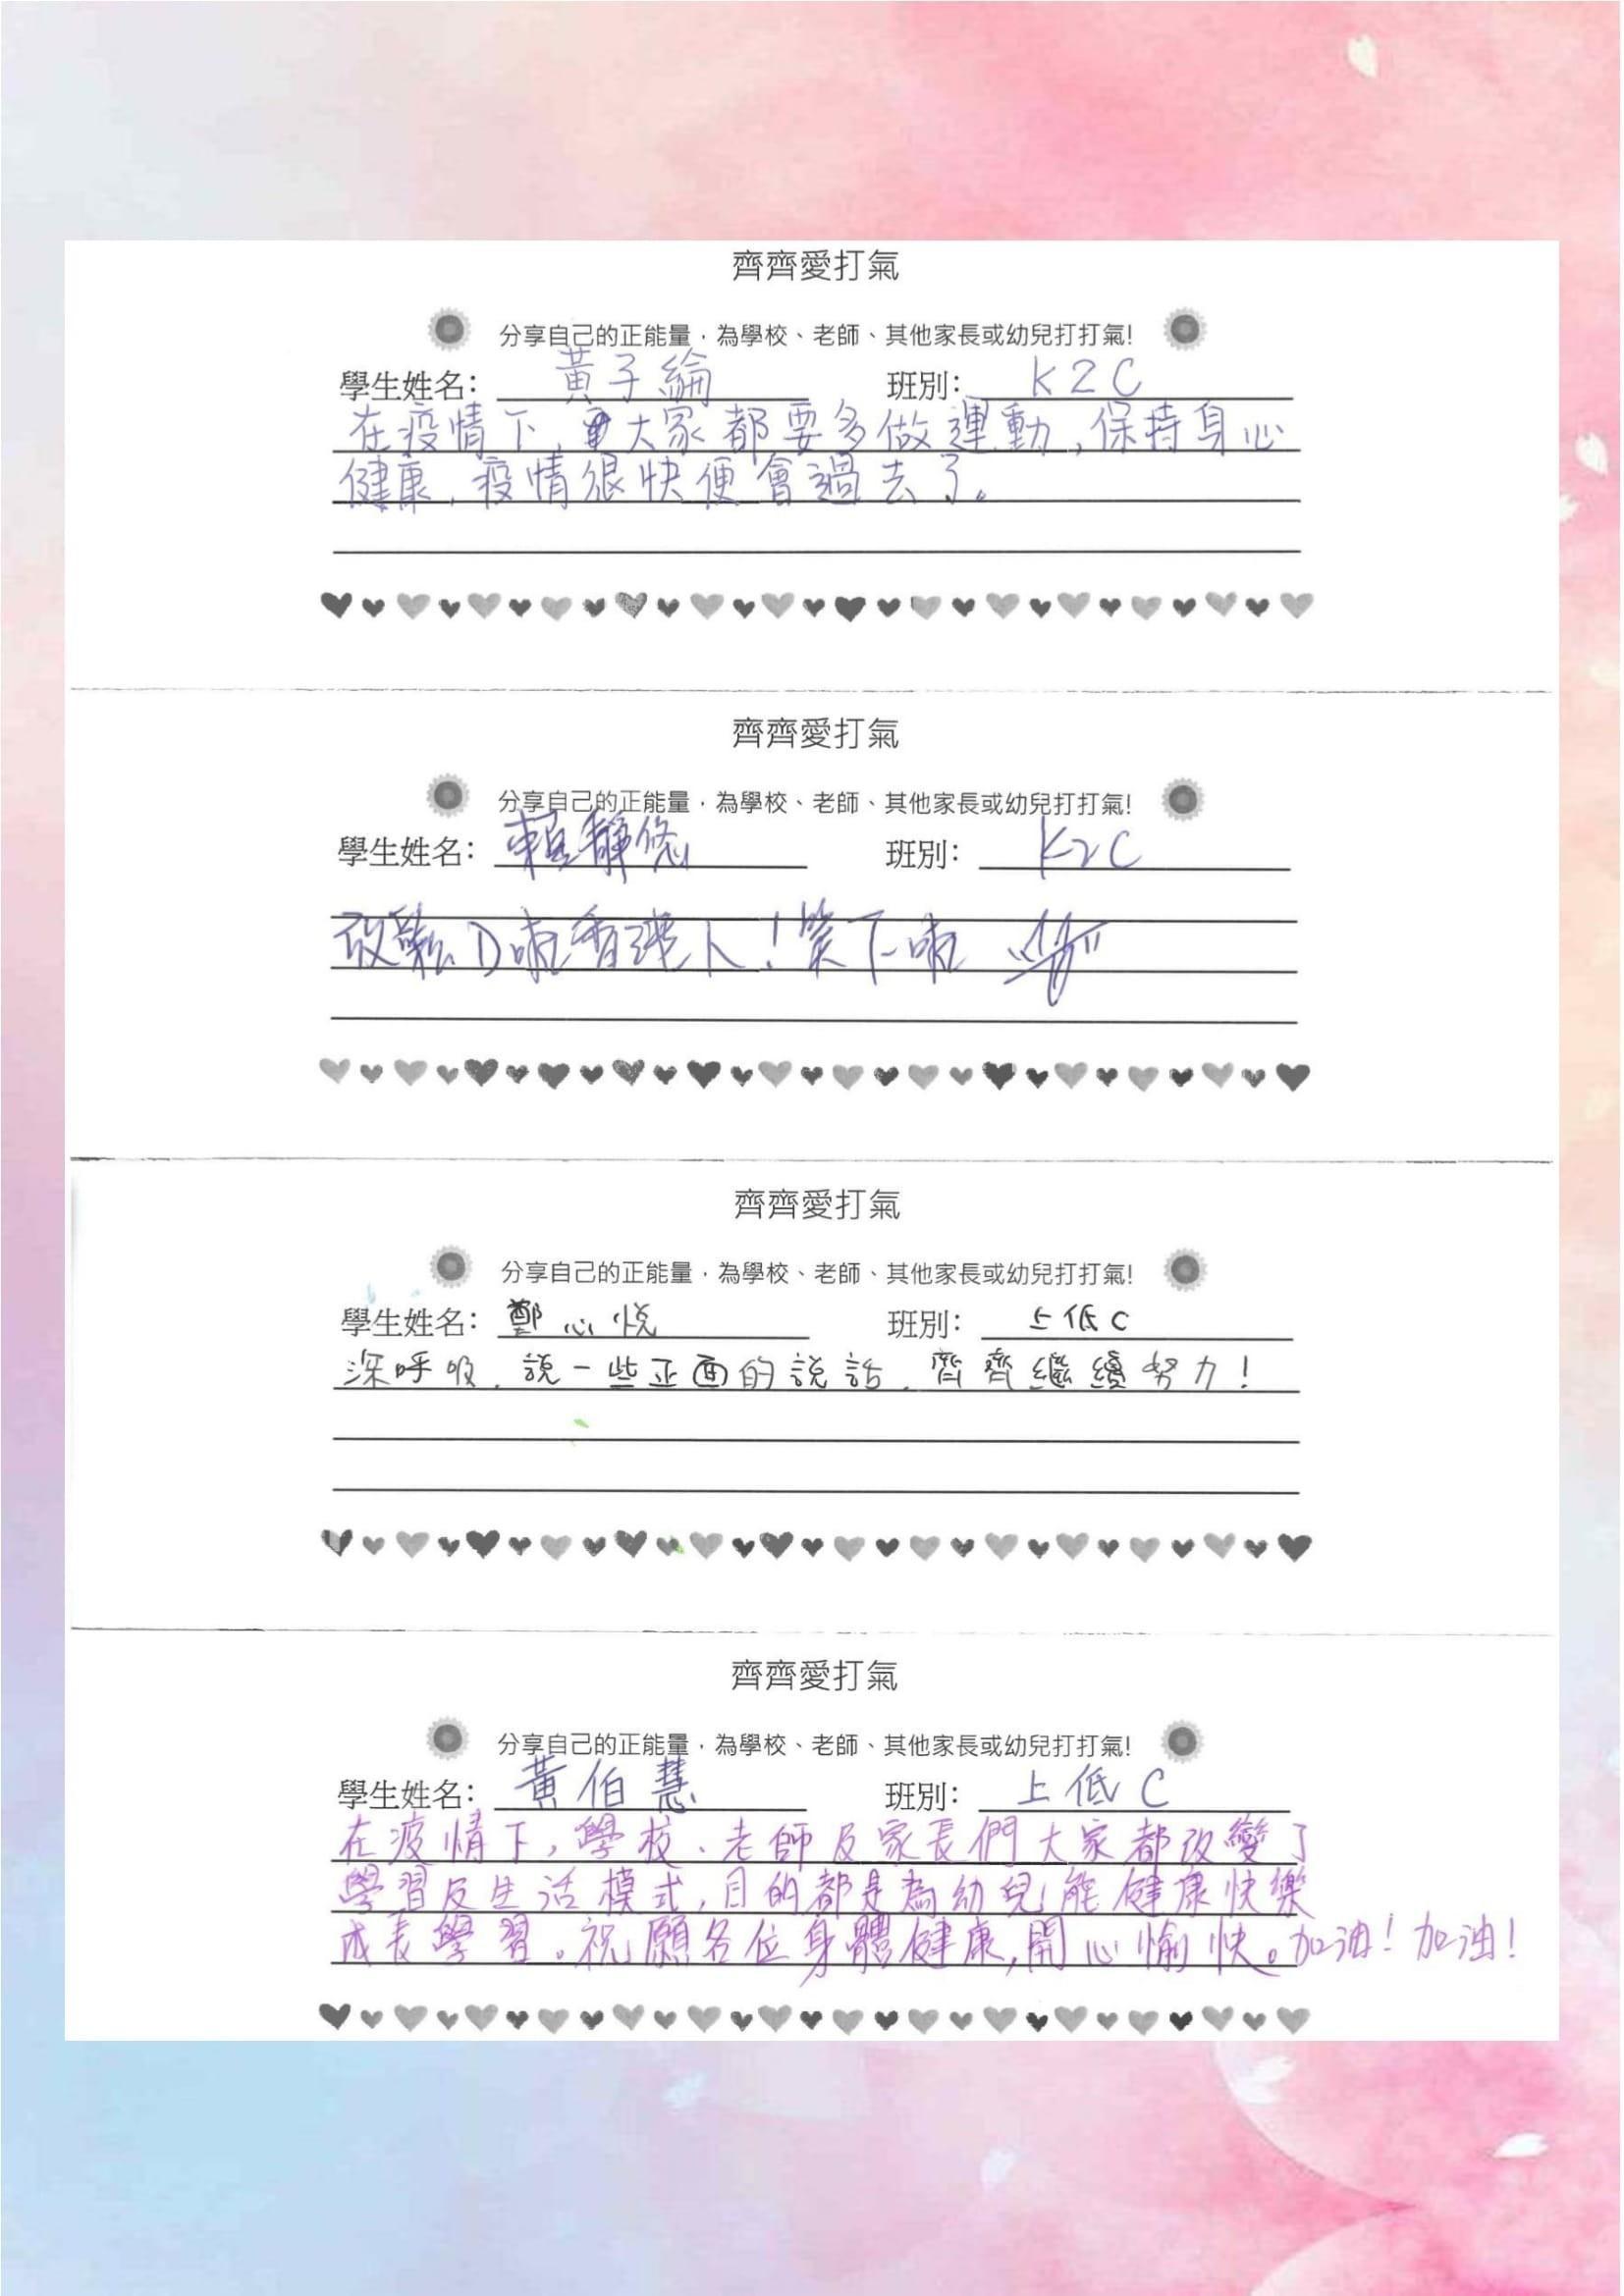 齊齊愛打氣
分享自己的正能量，為學校、老師、其他家長或幼兒打打氣!
學生姓名： 黃子綸 班別： K2C
在疫情下，大家都要多做運動，保持身心
健康，疫情很快便會過去了。
齊齊愛打氣
分享自己的正能量，為學校、老師、其他家長或幼兒打打氣!
學生姓名： 賴靜悠 班別： K2C
放鬆D啦香港人！笑下啦
齊齊愛打氣
分享自己的正能量，為學校、老師、其他家長或幼兒打打氣!
學生姓名： 鄭心悅 班別： 上低C
深呼吸，說一些正面的說話，齊齊繼續努力！
齊齊愛打氣
分享自己的正能量，為學校、老師、其他家長或幼兒打打氣!
學生姓名： 黃伯慧 班別： 上低C
在疫情下，學校、老師及家長們大家都改變了
學習及生活模式，目的都是為幼兒能健康快樂
成長學習。祝願各位身體健康，開心愉快。加油！加油！